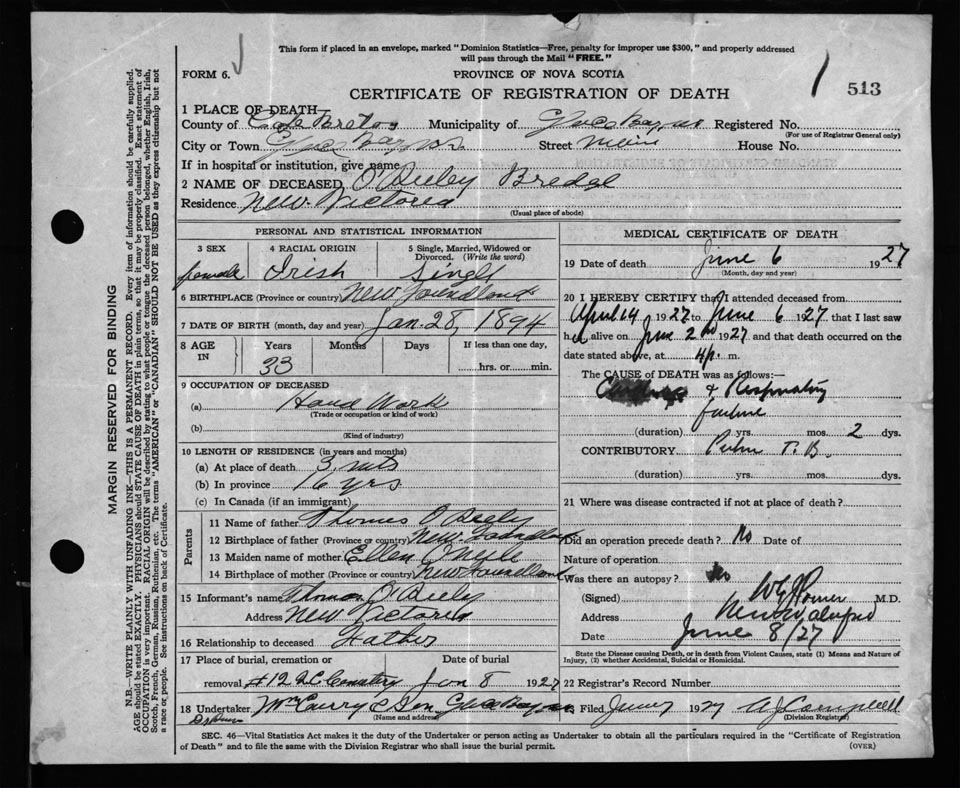 This form if placed in an envelope, marked "Dominion Statistics—Free, penalty for improper use $300," and properly addressed
will pass through the Mail "FREE."
FORM 6. PROVINCE OF NOVA SCOTIA
CERTIFICATE OF REGISTRATION OF DEATH 513
1 PLACE OF DEATH—
County of Cape Breton Municipality of Registered No.
(For use of Registrar General only)
City or Town Street Main House No.
If in hospital or institution, give name
2 NAME OF DECEASED Bredge
Residence New Victoria
(Usual place of abode)
PERSONAL AND STATISTICAL INFORMATION
3 SEX 4 RACIAL ORIGIN 5 Single, Married, Widowed or Divorced. (Write the word)
female Irish Single
6 BIRTHPLACE (Province or country) New Foundland
7 DATE OF BIRTH (month, day and year) Jan. 28, 1894
8 AGE IN Years Months Days If less than one day,
33 hrs. or min.
9 OCCUPATION OF DECEASED
(a) House Work
(Trade or occupation or kind of work)
(b)
(Kind of industry)
10 LENGTH OF RESIDENCE (in years and months)
(a) At place of death 3 mts
(b) In province 16 yrs
(c) In Canada (if an immigrant)
Parents
11 Name of father Thomas
12 Birthplace of father (Province or country) New Foundland
13 Maiden name of mother Ellen O'Neile
14 Birthplace of mother (Province or country) New Foundland
15 Informant's name Thomas
Address New Victoria
16 Relationship to deceased Father
17 Place of burial, cremation or Date of burial
removal #12 Cemetery 8 1927
18 Undertaker
(Name and address)
MEDICAL CERTIFICATE OF DEATH
19 Date of death June 6 1927
(Month, day and year)
20 I HEREBY CERTIFY that I attended deceased from
April 14 1927 to June 6 1927 that I last saw
h alive on June 2nd 1927 and that death occurred on the
date stated above, at 4 p. m.
The CAUSE of DEATH was as follows:—
& Respiratory
failure
(duration) yrs. mos. 2 dys.
CONTRIBUTORY Pulm T. B.
(duration) yrs. mos. dys.
21 Where was disease contracted if not at place of death?
Did an operation precede death? No Date of
Nature of operation
Was there an autopsy? No
(Signed) M.D.
Address New Waterford
Date June 8/27
State the Disease causing Death, or in death from Violent Causes, state (1) Means and Nature of
Injury, (2) whether Accidental, Suicidal or Homicidal.
22 Registrar's Record Number
Filed June 1927 A J Campbell
(Division Registrar)
SEC. 46—Vital Statistics Act makes it the duty of the Undertaker or person acting as Undertaker to obtain all the particulars required in the "Certificate of Registration
of Death" and to file the same with the Division Registrar who shall issue the burial permit. (OVER)
MARGIN RESERVED FOR BINDING
N.B.—WRITE PLAINLY WITH UNFADING INK—THIS IS A PERMANENT RECORD. Every item of information should be carefully supplied.
AGE should be stated EXACTLY. PHYSICIANS should STATE CAUSE OF DEATH in plain terms, so that it may be properly classified. Exact statement of
OCCUPATION is very important. RACIAL ORIGIN will be described by stating to what people or tongue the deceased person belonged, whether English, Irish,
Scotch, French, German, Russian, Ruthenian, etc. The terms "AMERICAN" or "CANADIAN" SHOULD NOT BE USED as they express citizenship but not
a race or people. See instructions on back of Certificate.